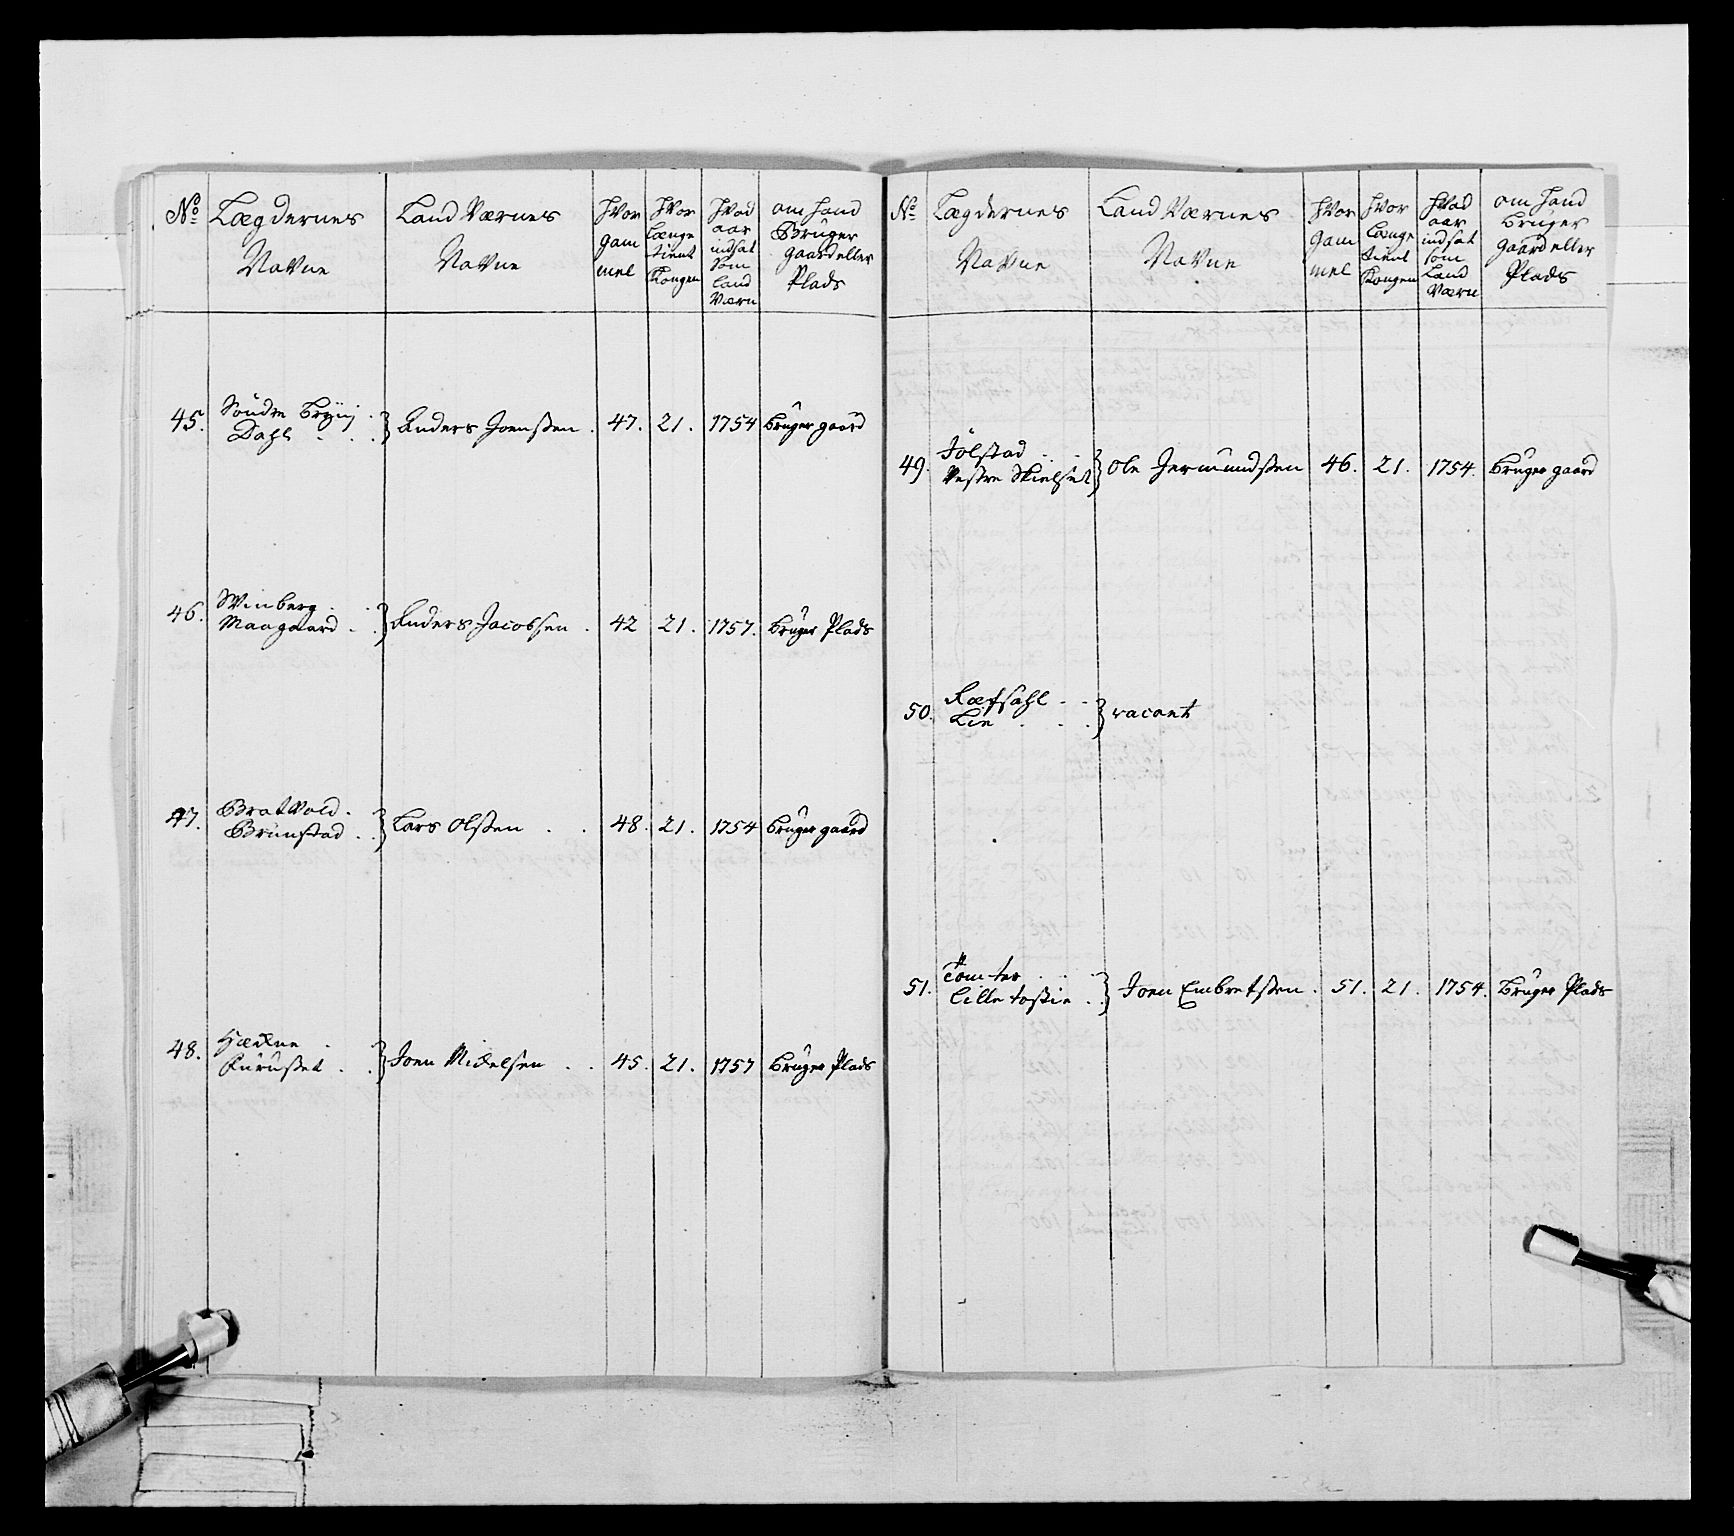 No Lægdernes Navne Land Værnes Navne Hvor gam mel Hvor Længe tient Kongen Hvad aar indsat som land Værn om hand Bruger gaard eller Plads
45. Søndre Bryni . Dahl . . . Anders Joenssen . 47. 21. 1754 bruger gaard
46. Svinberg . . Maagaard . . Anders Jacobsen . 42 21. 1757. bruger Plads
47. Bratvold . Brunstad . . Lars Olssen . . 48. 21. 1754 bruger gaard
48. Hækne . . Furusset . . Joen Mickelsen . . 45. 21. 1757 bruger Plads
No Lægdernes Navne Land Værnes Navne Hvor gam mel Hvor Længe tient Kongen Hvad aar indsat som Land Værn om hand bruger gaard eller Plads
49. Jølstad . . Vestre Skielset Ole Jermundssen 46. 21. 1754. bruger gaard
50. Ræfsahl . . Lie . . . vacant
51. Tomter . . . Lille Toskie . . Joen Embretssen . 51. 21. 1754. bruger Plads